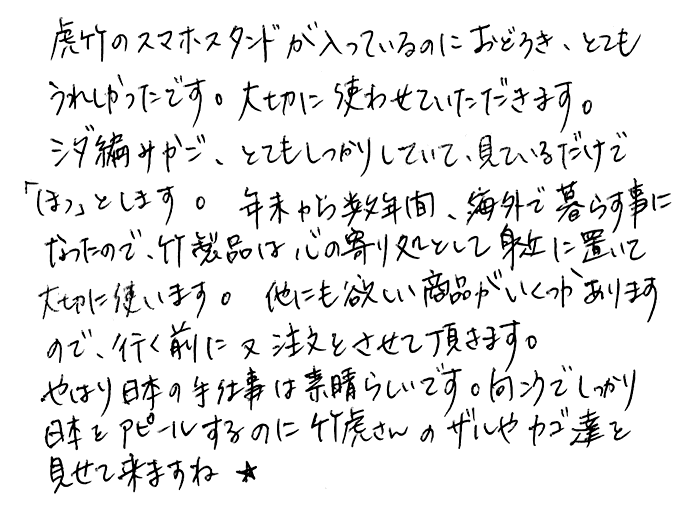 虎竹のスマホスタンドが入っているのにおどろき、とても
うれしかったです。大切に使わせていただきます。
シダ編みかご、とてもしっかりしていて、見ているだけで
「ほっ」とします。年末から数年間、海外で暮らす事に
なったので、竹製品は心の寄り処として身近に置いて
大切に使います。他にも欲しい商品がいくつかあります
ので、行く前に又注文をさせて頂きます。
やはり日本の手仕事は素晴らしいです。向こうでしっかり
日本をアピールするのに竹虎さんのザルやカゴ達を
見せて来ますね★